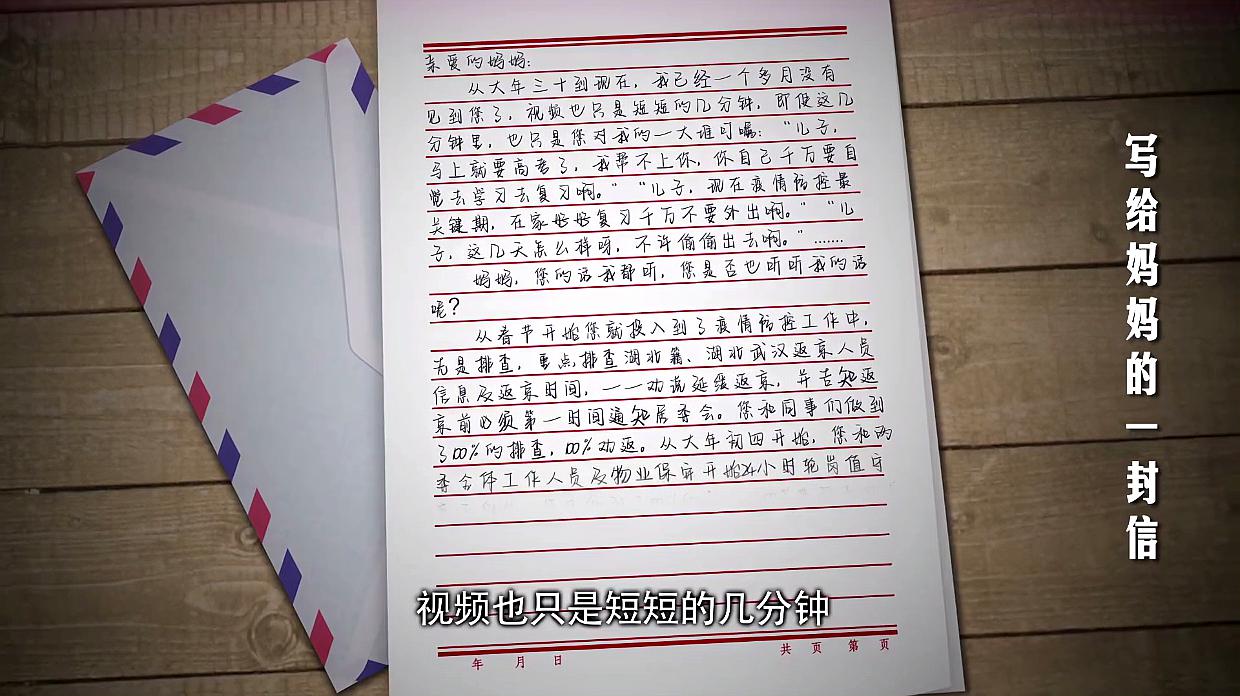 亲爱的妈妈：
从大年三十到现在，我已经一个多月没有
见到您了，视频也只是短短的几分钟，即使这几
分钟里，也只是您对我的一大堆叮嘱：“儿子，
马上就要高考了，我帮不上你，你自己千万要自
觉去学习去复习啊。”“儿子，现在疫情防控最
关键期，在家好好复习千万不要外出啊。”“儿
子，这几天怎么样呀，不许偷偷出去啊。”……
妈妈，您的话我都听，您是否也听听我的话
呢？
从春节开始您就投入到了疫情防控工作中，
先是排查，重点排查湖北籍、湖北武汉返京人员
信息及返京时间，一一劝说延缓返京，并告知返
京前必须第一时间通知居委会。您和同事们做到
了100%的排查，100%劝返。从大年初四开始，您和两
委全体工作人员及物业保安开始24小时轮岗值守
年 月 日
共 页 第 页
写给妈妈的一封信
视频也只是短短的几分钟